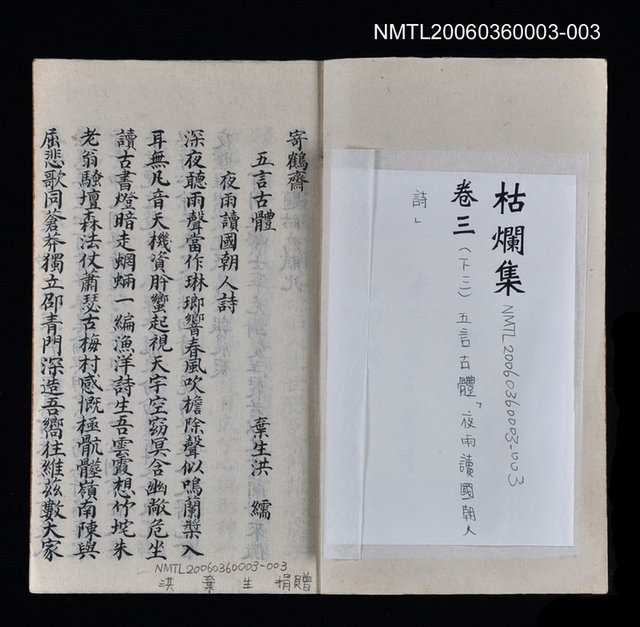 NMTL20060360003-003
枯爛集
NMTL20060360003-003
卷三(下三)五言古體「夜雨讀國朝人
詩」
寄鶴齋
五言古體 棄生洪繻
夜雨讀國朝人詩
深夜聽雨聲當作琳瑯響春風吹檐除聲似鳴蘭槳入
耳無凡音天機資肹蠁起視天宇空窈冥含幽敞危坐
讀古書燈暗走蝄蜽一編漁洋詩生吾雲霞想竹垞朱
老翁騷壇森法仗蕭瑟古梅村感慨極骯髒嶺南陳與
屈悲歌同蒼莽獨立邵青門深造吾嚮往維茲數大家
NMTL20060360003-003
洪棄生捐贈